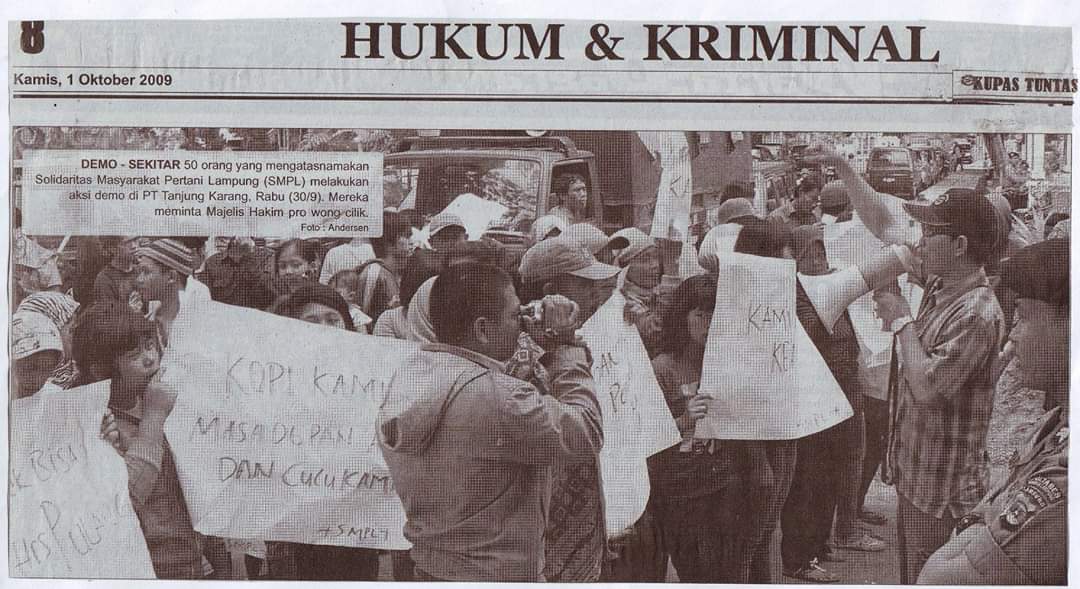 8
HUKUM & KRIMINAL
Kamis, 1 Oktober 2009
KUPAS TUNTAS
DEMO - SEKITAR 50 orang yang mengatasnamakan
Solidaritas Masyarakat Pertani Lampung (SMPL) melakukan
aksi demo di PT Tanjung Karang, Rabu (30/9). Mereka
meminta Majelis Hakim pro wong cilik.
Foto : Andersen
KOPI KAMI
MASA DEPAN
DAN CUCU KAMI
KAMI